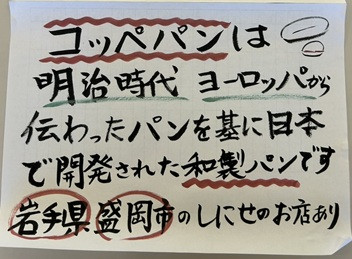 コッペパンは
明治時代 ヨーロッパから
伝わったパンを基に日本
で開発された和製パンです
岩手県盛岡市のしにせのお店あり